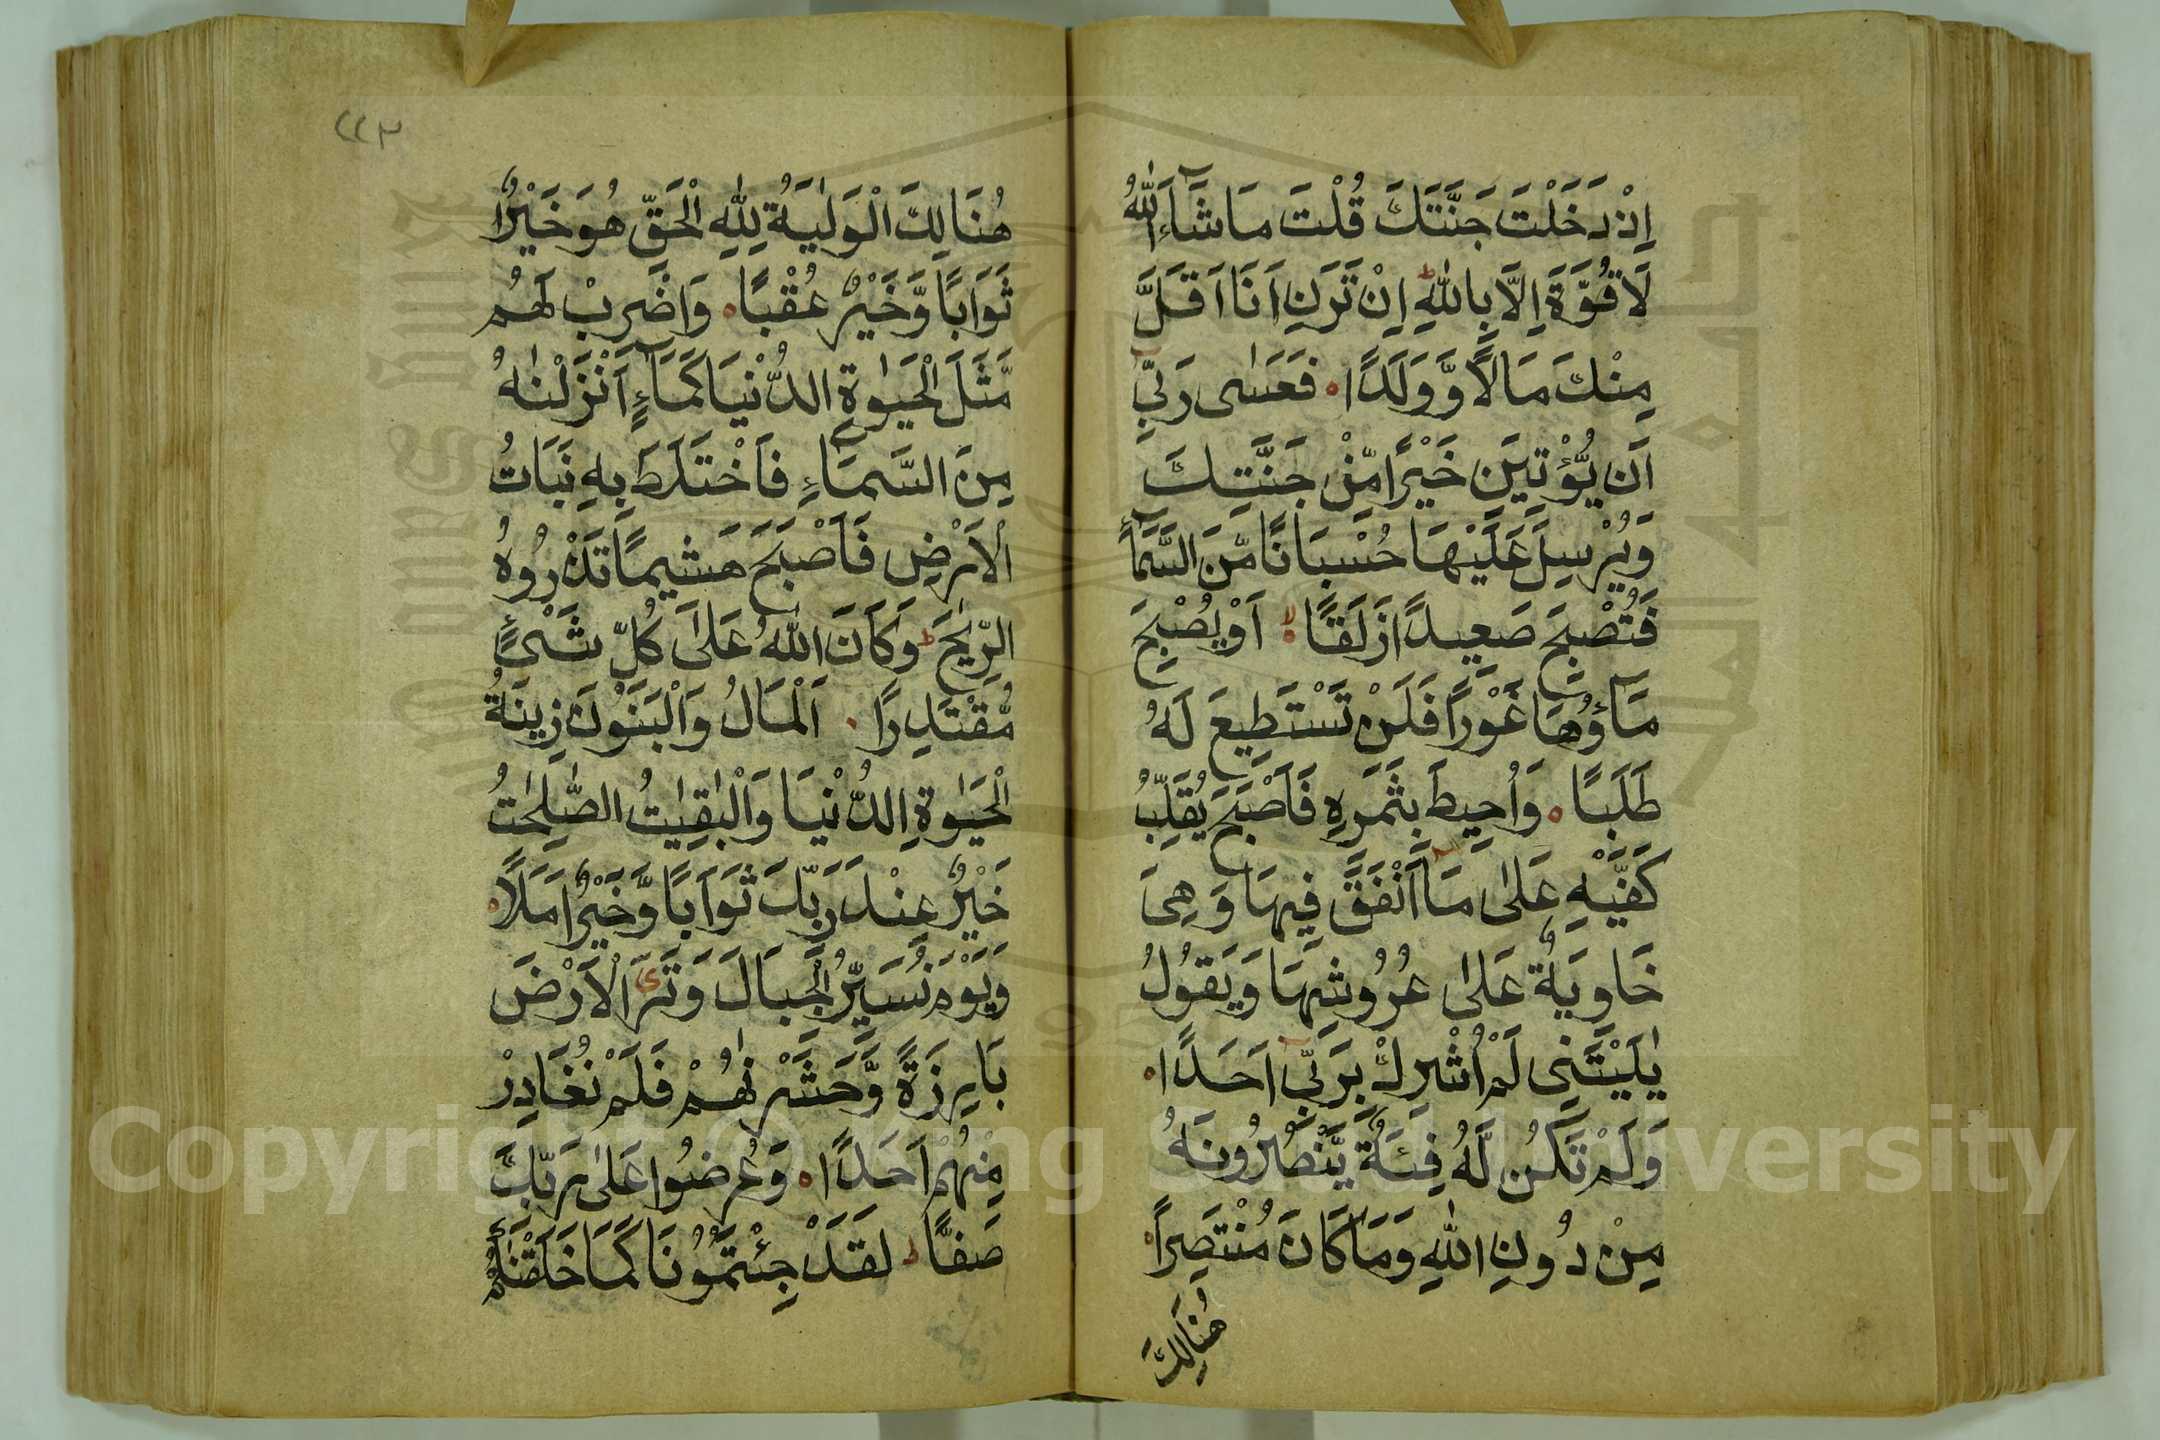 اِذْ دَخَلْتَ جَنَّتَكَ قُلْتَ مَا شَآءَ اللّٰهُ
لَا قُوَّةَ اِلَّا بِاللّٰهِ ؕ اِنْ تَرَنِ اَنَا اَقَلَّ
مِنْكَ مَالًا وَّ وَلَدًا ۝ فَعَسٰى رَبِّىٓ
اَن يُّؤْتِيَنِ خَيْرًا مِّنْ جَنَّتِكَ
وَيُرْسِلَ عَلَيْهَا حُسْبَانًا مِّنَ السَّمَآءِ
فَتُصْبِحَ صَعِيدًا زَلَقًا ۝ اَوْ يُصْبِحَ
مَآؤُهَا غَوْرًا فَلَنْ تَسْتَطِيعَ لَهُ
طَلَبًا ۝ وَاُحِيطَ بِثَمَرِهِ فَاَصْبَحَ يُقَلِّبُ
كَفَّيْهِ عَلٰى مَآ اَنْفَقَ فِيهَا وَهِىَ
خَاوِيَةٌ عَلٰى عُرُوشِهَا وَيَقُولُ
يٰلَيْتَنِى لَمْ اُشْرِكْ بِرَبِّىٓ اَحَدًا ۝
وَلَمْ تَكُنْ لَّهُ فِئَةٌ يَّنْصُرُونَهُ
مِنْ دُونِ اللّٰهِ وَمَا كَانَ مُنْتَصِرًا ۝
هُنَالِكَ
٢٢٣
هُنَالِكَ الْوَلَايَةُ لِلّٰهِ الْحَقِّ هُوَ خَيْرٌ
ثَوَابًا وَّخَيْرٌ عُقْبًا ۝ وَاضْرِبْ لَهُم
مَّثَلَ الْحَيٰوةِ الدُّنْيَا كَمَآءٍ اَنْزَلْنٰهُ
مِنَ السَّمَآءِ فَاخْتَلَطَ بِهِ نَبَاتُ
الْاَرْضِ فَاَصْبَحَ هَشِيمًا تَذْرُوهُ
الرِّيٰحُ ؕ وَكَانَ اللّٰهُ عَلٰى كُلِّ شَىْءٍ
مُّقْتَدِرًا ۝ اَلْمَالُ وَالْبَنُوْنَ زِينَةُ
الْحَيٰوةِ الدُّنْيَا وَالْبٰقِيٰتُ الصّٰلِحٰتُ
خَيْرٌ عِنْدَ رَبِّكَ ثَوَابًا وَّخَيْرٌ اَمَلًا ۝
وَيَوْمَ نُسَيِّرُ الْجِبَالَ وَتَرَى الْاَرْضَ
بَارِزَةً وَّحَشَرْنٰهُمْ فَلَمْ نُغَادِرْ
مِنْهُمْ اَحَدًا ۝ وَعُرِضُوا عَلٰى رَبِّكَ
صَفًّا ؕ لَقَدْ جِئْتُمُوْنَا كَمَا خَلَقْنٰكُمْ
Copyright © King Saud University